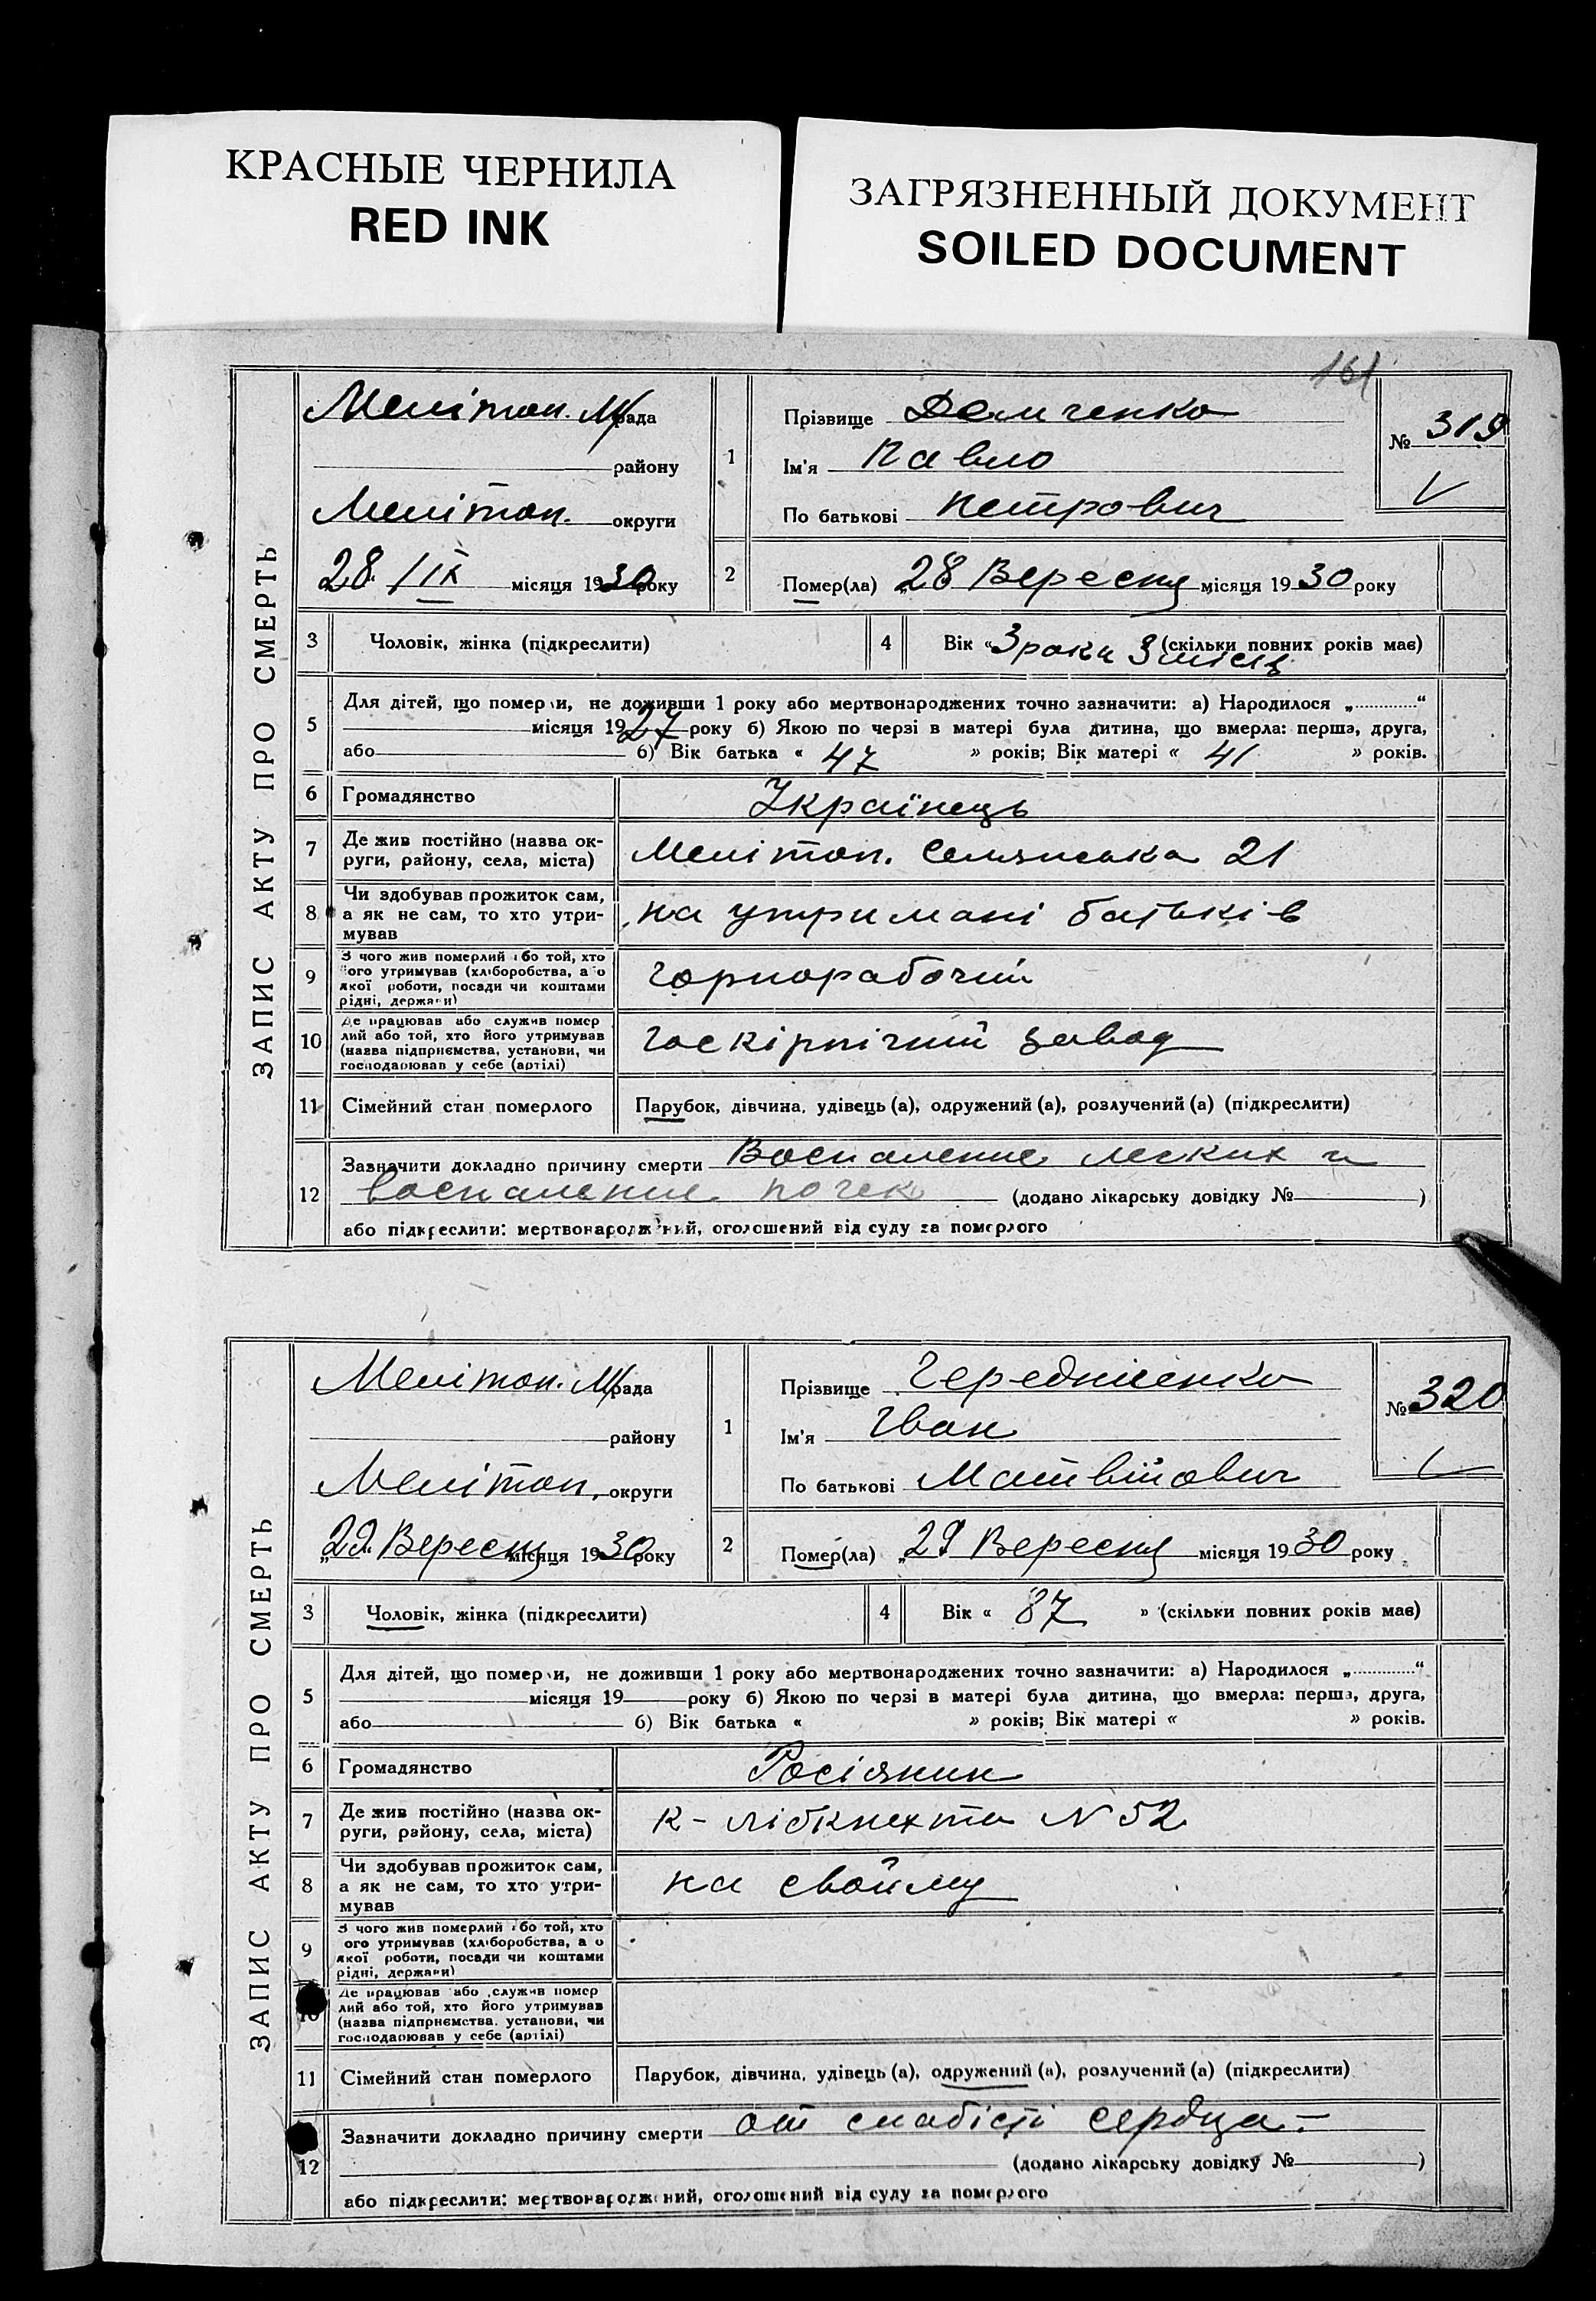 КРАСНЫЕ ЧЕРНИЛА
RED INK
ЗАГРЯЗНЕННЫЙ ДОКУМЕНТ
SOILED DOCUMENT
161
ЗАПИС АКТУ ПРО СМЕРТЬ
Мелітоп. М/рада
району
Мелітоп. округи
28 /IX місяця 1930 року
1
Прізвище Демченко
Ім'я Павло
По батькові Петрович
№ 319
2
Помер(ла) „28 Вересня місяця 1930 року
3 Чоловік, жінка (підкреслити)
4 Вік «3 роки 3 місяц (скільки повних років має)
5 Для дітей, що померли, не доживши 1 року або мертвонароджених точно зазначити: а) Народилося „............“
місяця 1927 року б) Якою по черзі в матері була дитина, що вмерла: перша, друга,
або б) Вік батька « 47 » років; Вік матері « 41 » років.
6 Громадянство Українець
7 Де жив постійно (назва ок-
руги, району, села, міста) Мелітоп. Селянська 21
8 Чи здобував прожиток сам,
а як не сам, то хто утри-
мував на утримані батьків
9 З чого жив померлий або той, хто
його утримував (хліборобства, а о
якої роботи, посади чи коштами
рідні, держави) Чорнорабочий
10 Де працював або служив помер
лий або той, хто його утримував
(назва підприємства, установи, чи
господарював у себе (артілі) Госкірпічний завод
11 Сімейний стан померлого Парубок, дівчина, удівець (а), одружений (а), розлучений (а) (підкреслити)
12 Зазначити докладно причину смерти Воспаление легких и
воспаление почек (додано лікарську довідку № )
або підкреслити: мертвонароджений, оголошений від суду за померлого
ЗАПИС АКТУ ПРО СМЕРТЬ
Мелітоп. М/рада
району
Мелітоп. округи
„29“ Вересня місяця 1930 року
1
Прізвище Чередніченко
Ім'я Іван
По батькові Матвійович
№ 320
2
Помер(ла) „29 Вересня місяця 1930 року
3 Чоловік, жінка (підкреслити)
4 Вік « 87 » (скільки повних років має)
5 Для дітей, що померли, не доживши 1 року або мертвонароджених точно зазначити: а) Народилося „............“
місяця 19 року б) Якою по черзі в матері була дитина, що вмерла: перша, друга,
або б) Вік батька « » років; Вік матері « » років.
6 Громадянство Росіянин
7 Де жив постійно (назва ок-
руги, району, села, міста) К-лібкнехта N 52
8 Чи здобував прожиток сам,
а як не сам, то хто утри-
мував на свойму
9 З чого жив померлий або той, хто
його утримував (хліборобства, а о
якої роботи, посади чи коштами
рідні, держави)
10 Де працював або служив помер
лий або той, хто його утримував
(назва підприємства, установи, чи
господарював у себе (артілі)
11 Сімейний стан померлого Парубок, дівчина, удівець (а), одружений (а), розлучений (а) (підкреслити)
12 Зазначити докладно причину смерти от слабісті сердца.-
(додано лікарську довідку № )
або підкреслити: мертвонароджений, оголошений від суду за померлого